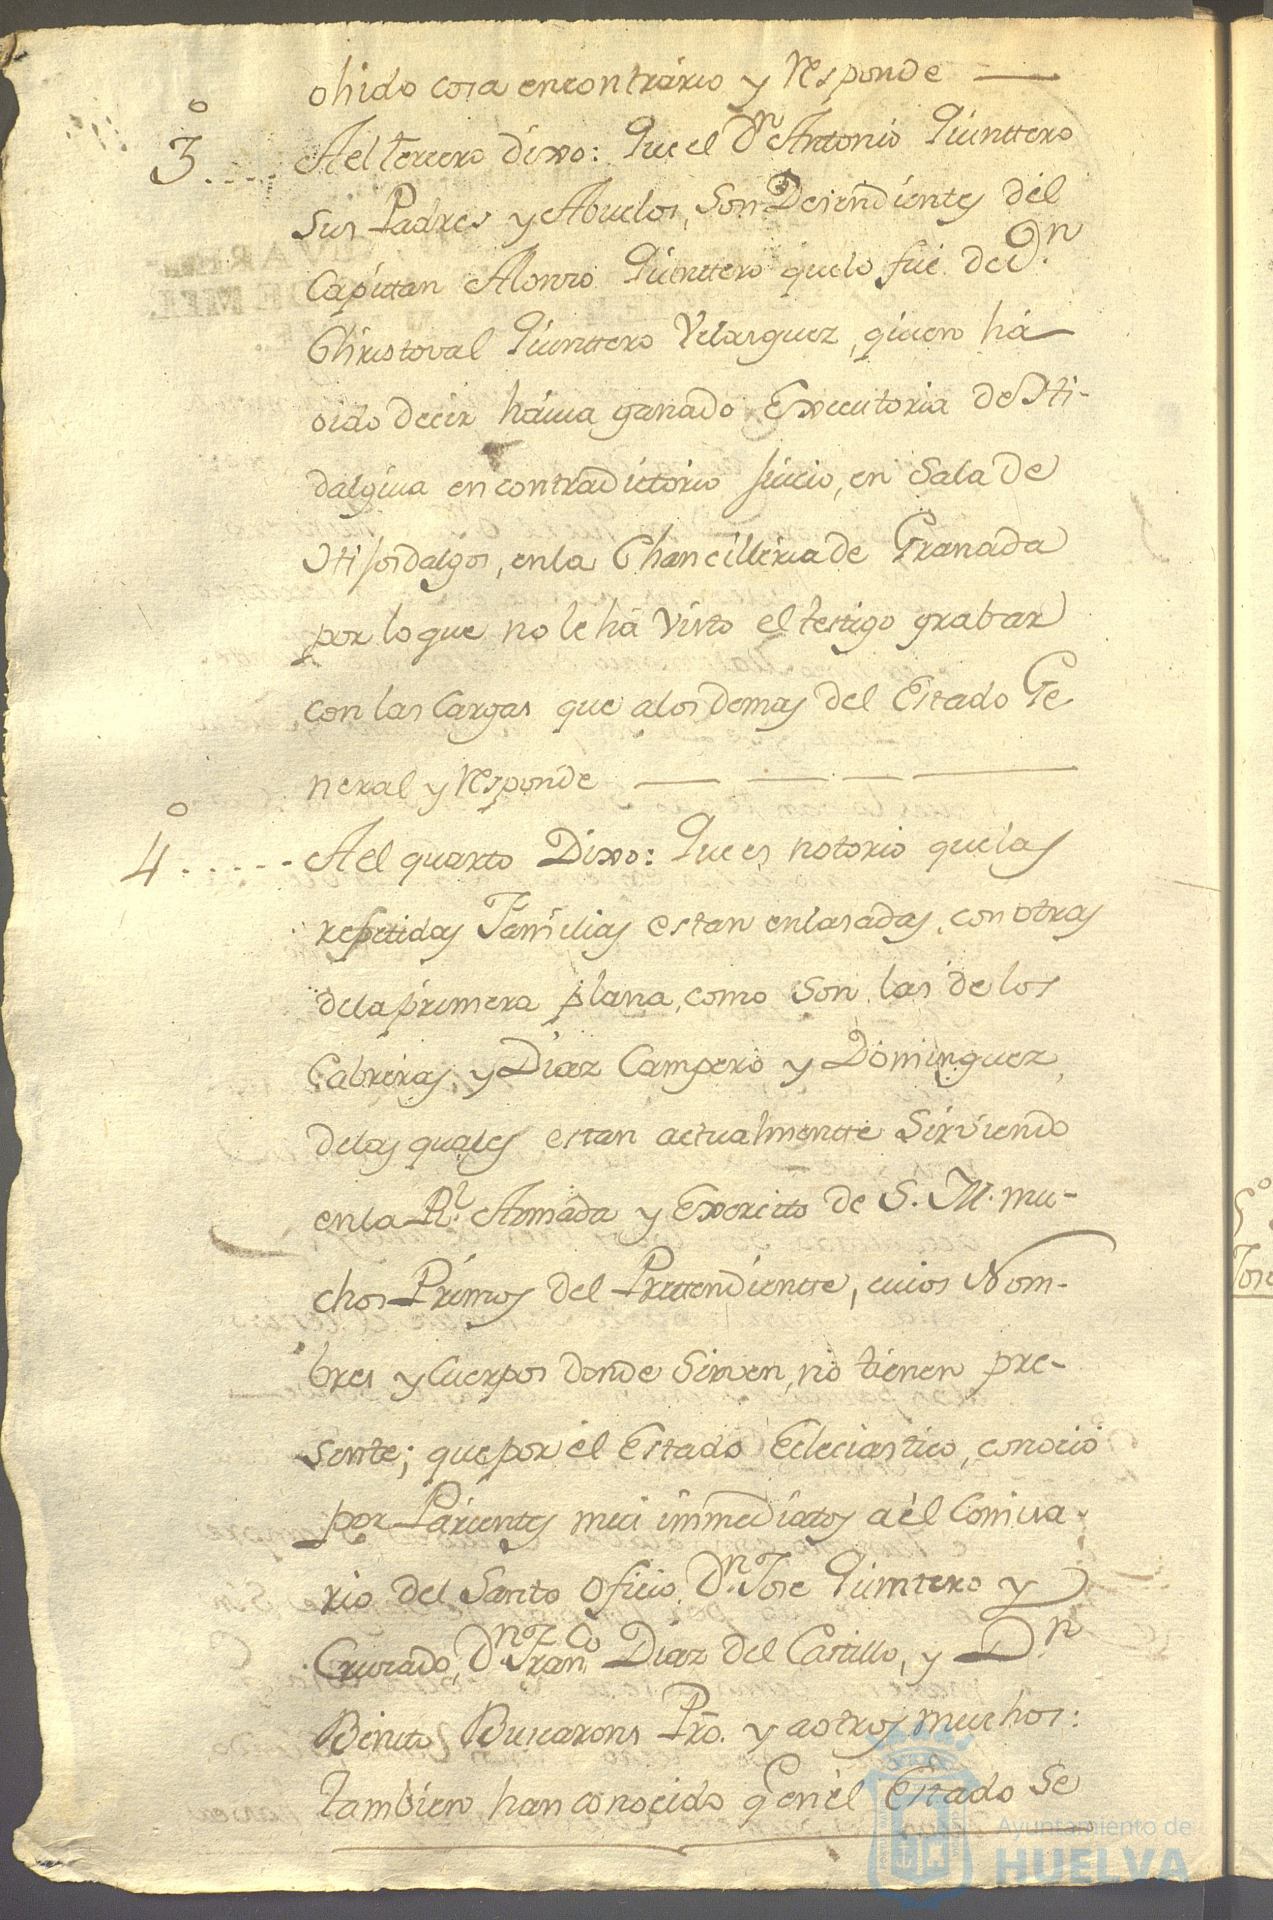 ohido cosa encontrario y responde
3.º .... A el tercero dixo: Que el Dn Antonio Quinttero
sus Padres y Abuelos, son Desendientes del
Capittan Alonzo Quinttero que lo fue de Dn.
Christoval Quinttero Velasquez, quien há
oido decir havia ganado Executoria de Hi-
dalguia en contradictorio Juicio, en Sala de
Hijosdalgos, en la Chancilleria de Granada
por lo que no le há visto el testigo grabar
con las cargas que a los demas del Estado Ge
neral y responde
4.º ..... A el quarto Dixo: Que es notorio que las
repetidas Familias estan enlasadas, con otras
de la primera plana, como son las de los
Cabreras, y Diaz Campero y Dominguez,
de las quales estan actualmentte Sirviendo
en la Rl. Armada y Exercitto de S. M. mu-
chos Primos del Prettendientte, cuios Nom-
bres y Cuerpos donde Sirven, no tienen pre-
sente; que por el Estado Eclesiastico, conocio
por Parientes mui immediatos a el Comisa-
rio del Santo oficio Dn. Jose Quinttero y
Cruzado, Dn. Franco. Diaz del Castillo, y Dn
Benito Buscarons Pro. y a otros muchos:
tambien han conocido q en el Estado Se
S.º
Jose
Ayuntamiento de
HUELVA